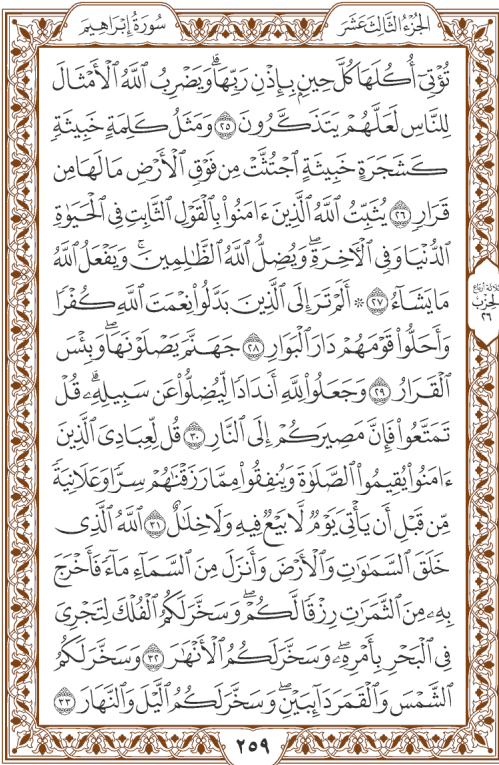 الجُزْءُ الثَّالِثَ عَشَرَ
سُورَةُ إِبْرَاهِيمَ
تُؤْتِىٓ أُكُلَهَا كُلَّ حِينٍۭ بِإِذْنِ رَبِّهَاۗ وَيَضْرِبُ ٱللَّهُ ٱلْأَمْثَالَ
لِلنَّاسِ لَعَلَّهُمْ يَتَذَكَّرُونَ ٢٥ وَمَثَلُ كَلِمَةٍ خَبِيثَةٍ
كَشَجَرَةٍ خَبِيثَةٍ ٱجْتُثَّتْ مِن فَوْقِ ٱلْأَرْضِ مَا لَهَا مِن
قَرَارٍ ٢٦ يُثَبِّتُ ٱللَّهُ ٱلَّذِينَ ءَامَنُوا۟ بِٱلْقَوْلِ ٱلثَّابِتِ فِى ٱلْحَيَوٰةِ
ٱلدُّنْيَا وَفِى ٱلْأَخِرَةِۖ وَيُضِلُّ ٱللَّهُ ٱلظَّٰلِمِينَۚ وَيَفْعَلُ ٱللَّهُ
مَا يَشَآءُ ٢٧ ۞ أَلَمْ تَرَ إِلَى ٱلَّذِينَ بَدَّلُوا۟ نِعْمَتَ ٱللَّهِ كُفْرًا
وَأَحَلُّوا۟ قَوْمَهُمْ دَارَ ٱلْبَوَارِ ٢٨ جَهَنَّمَ يَصْلَوْنَهَاۖ وَبِئْسَ
ٱلْقَرَارُ ٢٩ وَجَعَلُوا۟ لِلَّهِ أَندَادًا لِّيُضِلُّوا۟ عَن سَبِيلِهِۦۗ قُلْ
تَمَتَّعُوا۟ فَإِنَّ مَصِيرَكُمْ إِلَى ٱلنَّارِ ٣٠ قُل لِّعِبَادِىَ ٱلَّذِينَ
ءَامَنُوا۟ يُقِيمُوا۟ ٱلصَّلَوٰةَ وَيُنفِقُوا۟ مِمَّا رَزَقْنَٰهُمْ سِرًّا وَعَلَانِيَةً
مِّن قَبْلِ أَن يَأْتِىَ يَوْمٌ لَّا بَيْعٌ فِيهِ وَلَا خِلَٰلٌ ٣١ ٱللَّهُ ٱلَّذِى
خَلَقَ ٱلسَّمَٰوَٰتِ وَٱلْأَرْضَ وَأَنزَلَ مِنَ ٱلسَّمَآءِ مَآءً فَأَخْرَجَ
بِهِۦ مِنَ ٱلثَّمَرَٰتِ رِزْقًا لَّكُمْۖ وَسَخَّرَ لَكُمُ ٱلْفُلْكَ لِتَجْرِىَ
فِى ٱلْبَحْرِ بِأَمْرِهِۦۖ وَسَخَّرَ لَكُمُ ٱلْأَنْهَٰرَ ٣٢ وَسَخَّرَ لَكُمُ
ٱلشَّمْسَ وَٱلْقَمَرَ دَآئِبَيْنِۖ وَسَخَّرَ لَكُمُ ٱلَّيْلَ وَٱلنَّهَارَ ٣٣
ثلاثة أرباع
الحزب
٢٦
٢٥٩